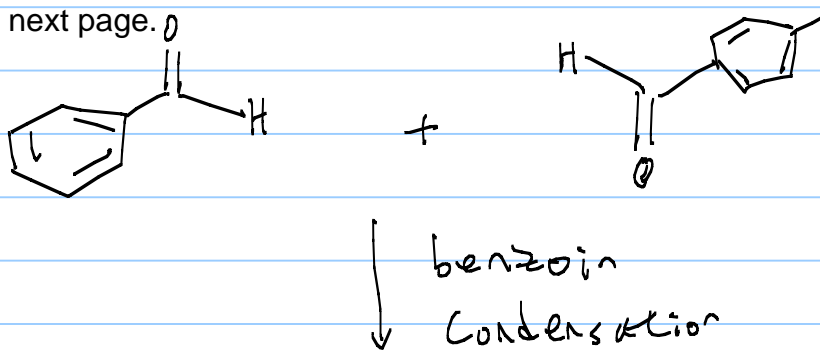 next page.
O
H
H
+
O
benzoin
Condensation